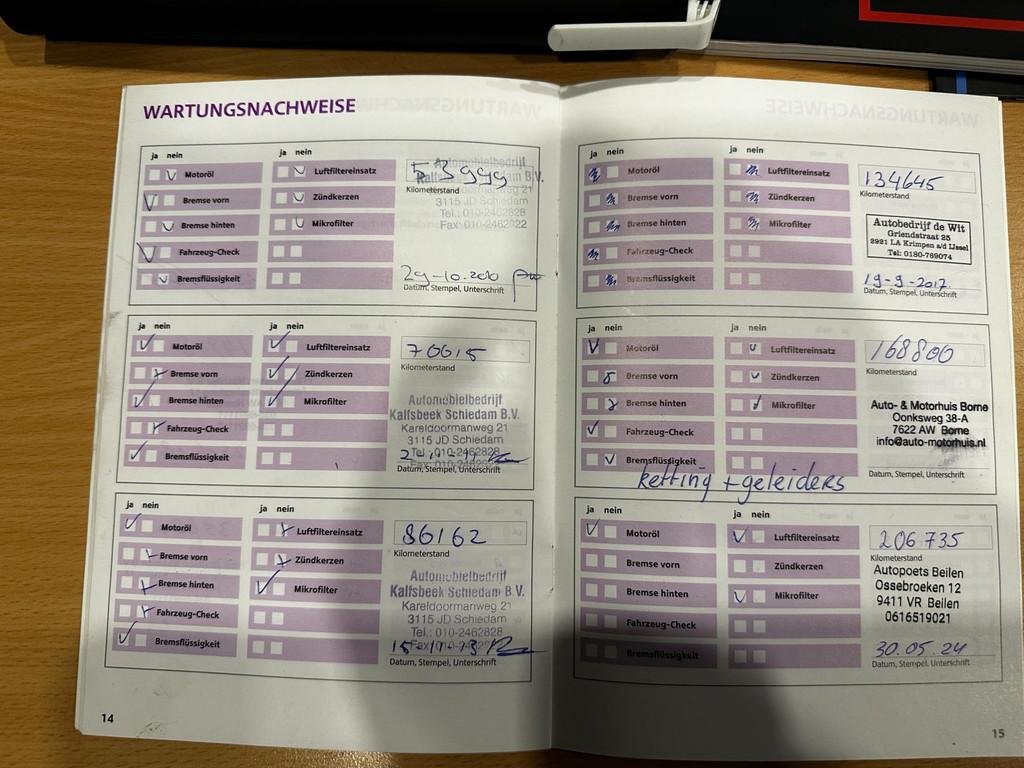 WARTUNGSNACHWEISE
ja nein
ja nein
Motoröl
Luftfiltereinsatz
Bremse vorn
Zündkerzen
Bremse hinten
Mikrofilter
Fahrzeug-Check
Bremsflüssigkeit
53999
Kilometerstand
Automobielbedrijf
Kalfsbeek Schiedam B.V.
Kareldoormanweg 21
3115 JD Schiedam
Tel.: 010-2462828
Fax: 010-2462022
29-10-2010
Datum, Stempel, Unterschrift
ja nein
ja nein
Motoröl
Luftfiltereinsatz
Bremse vorn
Zündkerzen
Bremse hinten
Mikrofilter
Fahrzeug-Check
Bremsflüssigkeit
70615
Kilometerstand
Automobielbedrijf
Kalfsbeek Schiedam B.V.
Kareldoormanweg 21
3115 JD Schiedam
Tel.: 010-2462828
Datum, Stempel, Unterschrift
ja nein
ja nein
Motoröl
Luftfiltereinsatz
Bremse vorn
Zündkerzen
Bremse hinten
Mikrofilter
Fahrzeug-Check
Bremsflüssigkeit
86162
Kilometerstand
Automobielbedrijf
Kalfsbeek Schiedam B.V.
Kareldoormanweg 21
3115 JD Schiedam
Tel.: 010-2462828
15-11-13
Datum, Stempel, Unterschrift
14
ja nein
ja nein
Motoröl
Luftfiltereinsatz
Bremse vorn
Zündkerzen
Bremse hinten
Mikrofilter
Fahrzeug-Check
Bremsflüssigkeit
134645
Kilometerstand
Autobedrijf de Wit
Griendstraat 25
2921 LA Krimpen a/d IJssel
Tel: 0180-769074
19-9-2017
Datum, Stempel, Unterschrift
ja nein
ja nein
Motoröl
Luftfiltereinsatz
Bremse vorn
Zündkerzen
Bremse hinten
Mikrofilter
Fahrzeug-Check
Bremsflüssigkeit
ketting + geleiders
168800
Kilometerstand
Auto- & Motorhuis Borne
Oonksweg 38-A
7622 AW Borne
info@auto-motorhuis.nl
Datum, Stempel, Unterschrift
ja nein
ja nein
Motoröl
Luftfiltereinsatz
Bremse vorn
Zündkerzen
Bremse hinten
Mikrofilter
Fahrzeug-Check
Bremsflüssigkeit
206735
Kilometerstand
Autopoets Beilen
Ossebroeken 12
9411 VR Beilen
0616519021
30.05.24
Datum, Stempel, Unterschrift
15